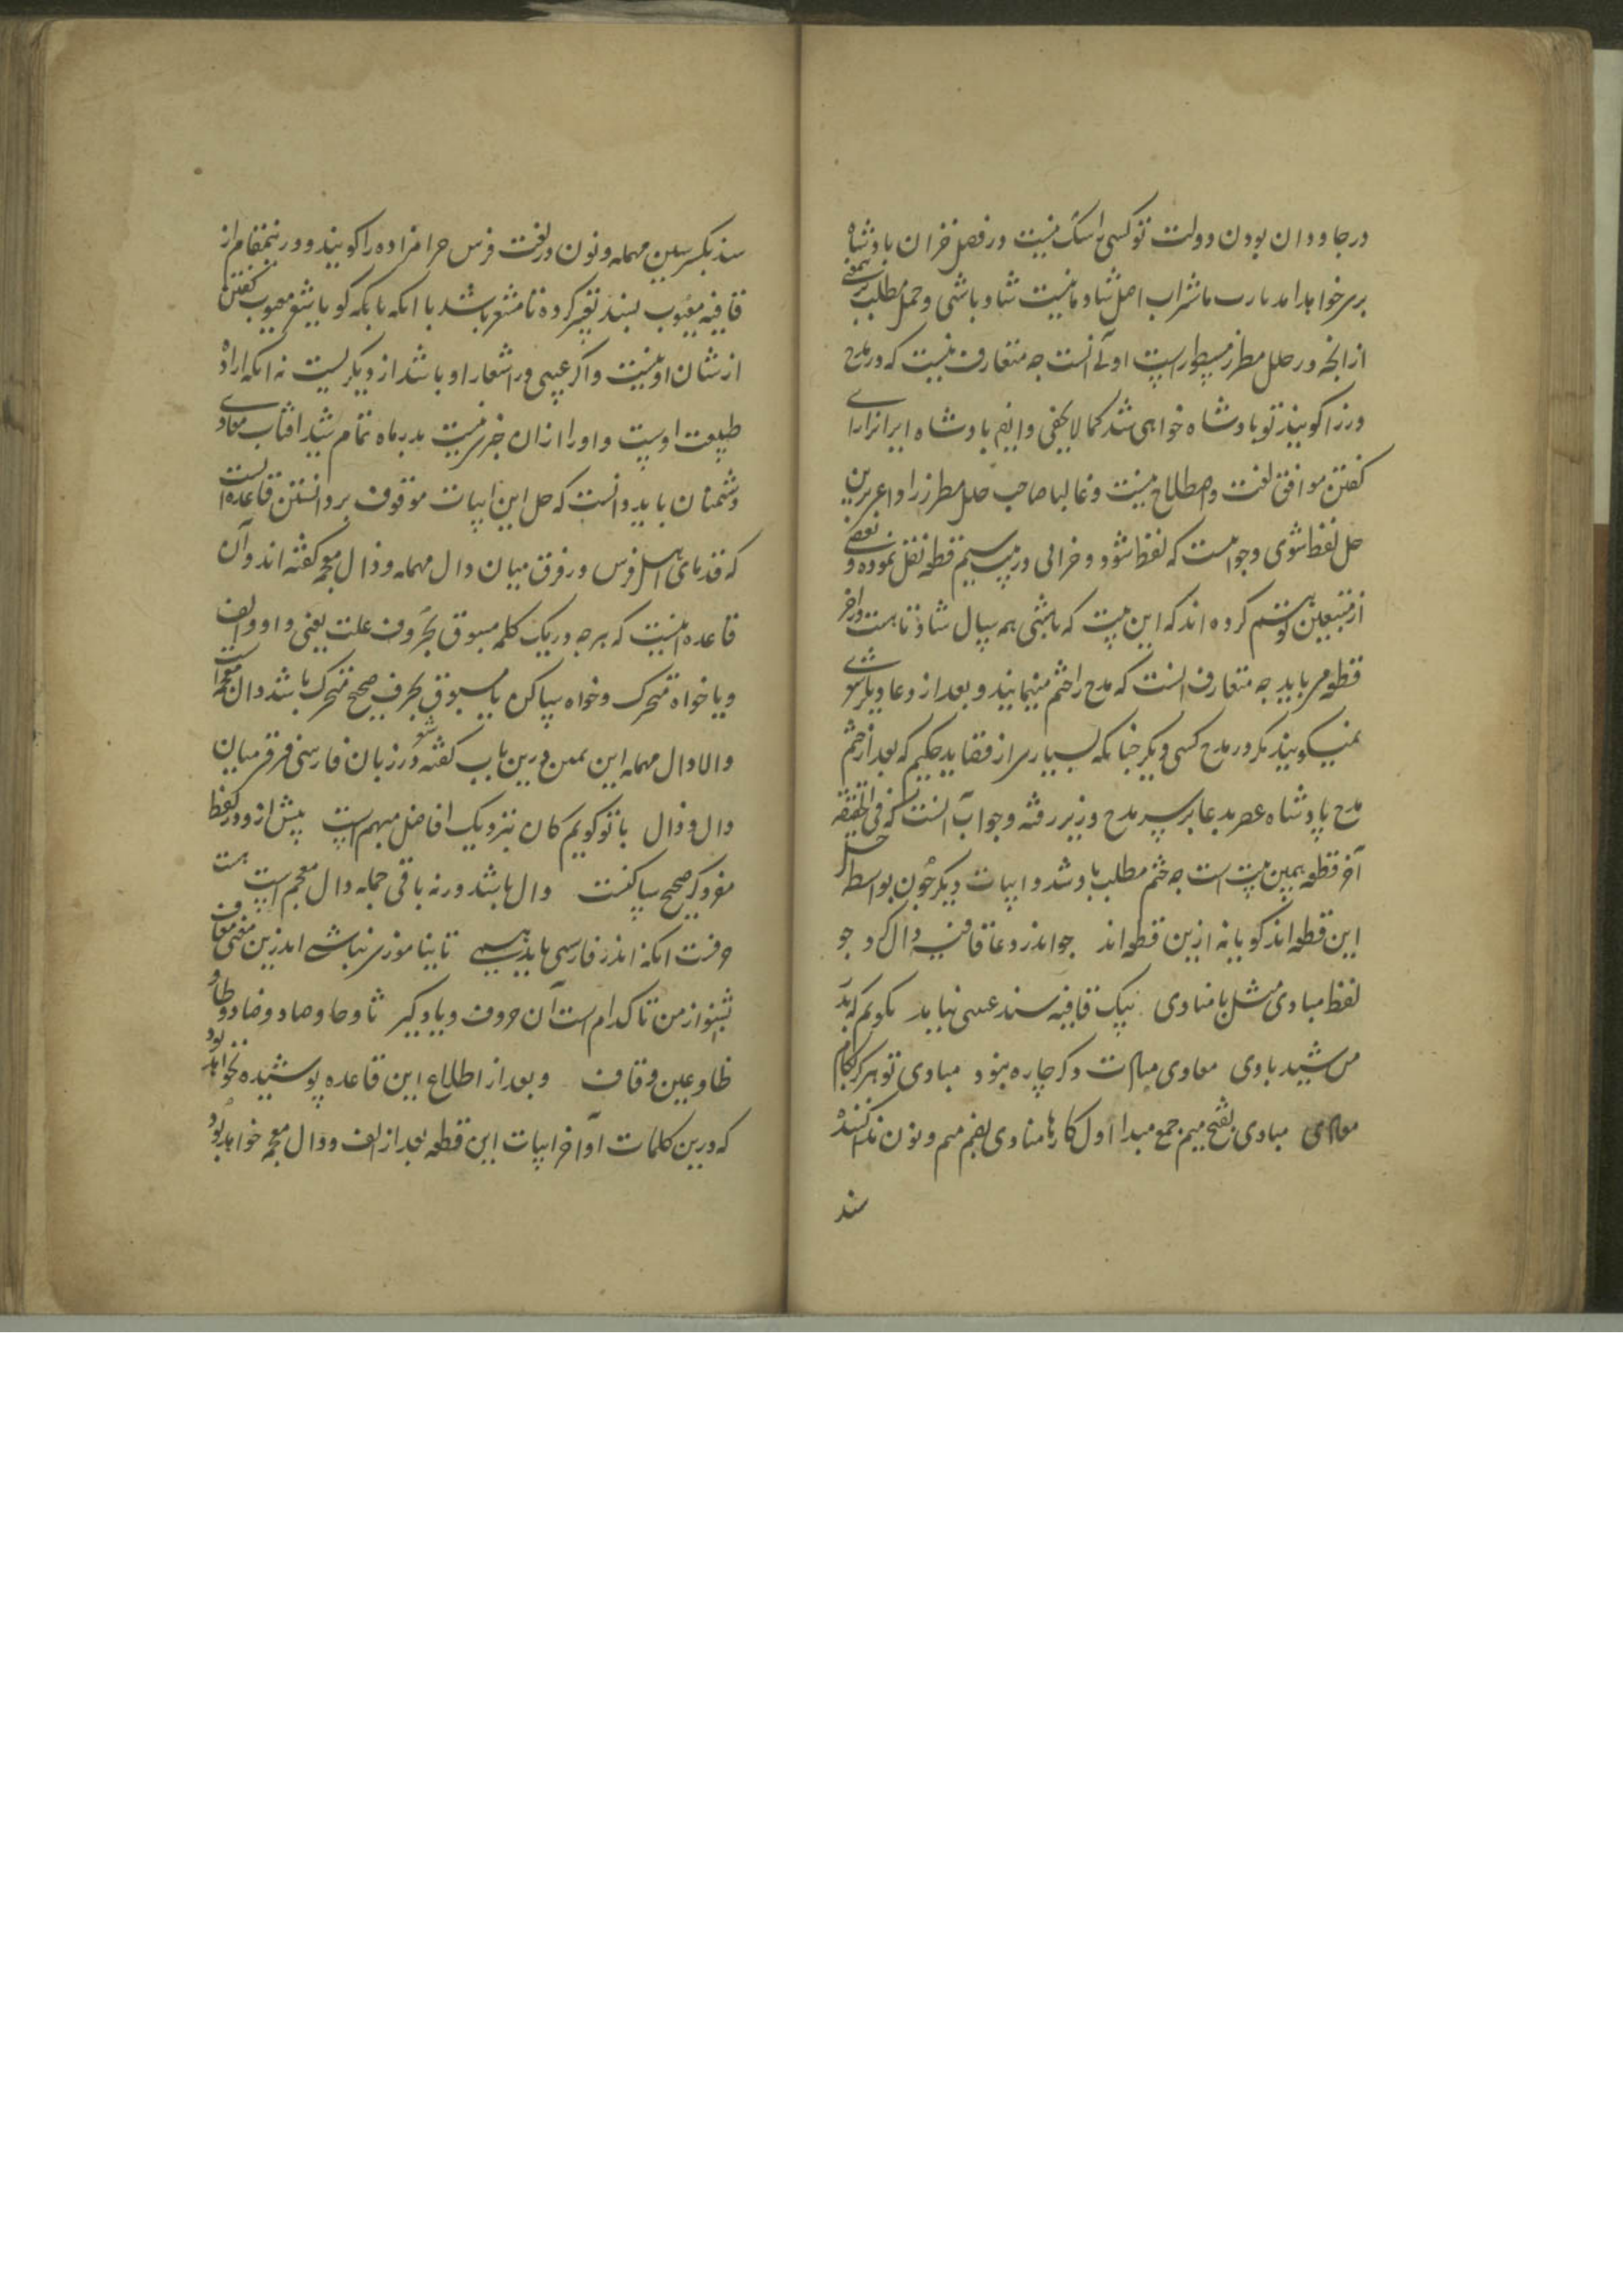 در جاودان بودن دولت تو کسی را شک نیست در فصل خزان بادشاه
بر سر خواهد آمد یا رب ما شراب اصل شادمانیست شاد باشی و حمل مطلب بر معنی
از آنچه در حلل مطرز مسطور است اولی آنست چه متعارف نیست که در مدح
وزرا گویند تو بادشاه خواهی شد کما لا یخفی و ایضا بادشاه ایران را رای
گفتن موافق لغت و اصطلاح نیست و غالبا صاحب حلل مطرز را داعی برین
حل لفظ شوی و جوابست که لفظ شود و خزانی در بیت سیم قطعه نقل نموده و بعضی
از متتبعین توهم کرده اند که این بیت که باشی همه سال شاد تا هست در آخر
قطعه می باید چه متعارف آنست که مدح را ختم مینمایند و بعد از دعا دیگر شعری
نمیگویند مگر در مدح کسی دیگر چنانکه بسیاری از قصاید حکیم که بعد از ختم
مدح پادشاه عصر بدعا بر سر مدح وزیر رفته و جواب آنست که فی الحقیقه
آخر قطعه همین بیت است چه ختم مطلب باد شد و ابیات دیگر چون بواسطه
این قطعه اند گویا نه ازین قطعه اند چو اندر دعا قافیه دال کرد چو
لفظ مبادی مثل با منادی بیک قافیه سند عیبی نیاید بگویم که بد
من شنید بادی معادی مبادت وگر چاره نبود مبادی تو هرگز بکام
معادی مبادی بفتح میم جمع مبدا اول کارها منادی بضم میم و نون ندا کننده
سند
سند بکسر سین مهمله و نون در لغت فرس حرامزاده را گویند و درینمقام از
قافیه معیوب بسند تعبیر کرده تا مشعر باشد با آنکه با بکه گویا شعر معیوب گفتن
از شان او نیست و اگر عیبی در اشعار او باشد از دیگریست نه آنکه اراده
طبیعت اوست و او را ازان خبر نیست بدر ماه تمام شید آفتاب معادی
دشمنان باید دانست که حل این ابیات موقوف بر دانستن قاعده است
که قدمای اهل فرس در فرق میان دال مهمله و ذال معجمه گفته اند و آن
قاعده اینست که هر چه در یک کلمه مسبوق بحروف علت یعنی واو و الف
و یا خواه متحرک و خواه ساکن یا مسبوق بحرف صحیح متحرک باشد دال معجمه است
والا دال مهمله ابن یمین درین باب گفته شعر در زبان فارسی فرق میان
دال و ذال با تو گویم کان نزدیک افاضل مبهم است پیش ازو در لفظ
مفرد گر صحیح ساکنست دال باشد ورنه باقی جمله ذال معجم است هشت
حرفست آنکه اندر فارسی ناید همی تا نیاموزی نباشی اندرین معنی معاف
بشنو از من تا کدام است آن حروف و یاد گیر ثا و حا و صاد و ضاد و طا و
ظا و عین و قاف و بعد از اطلاع این قاعده پوشیده نخواهد بود
که درین کلمات آواخر ابیات این قطعه بعد از الف و ذال معجمه خواهد بود